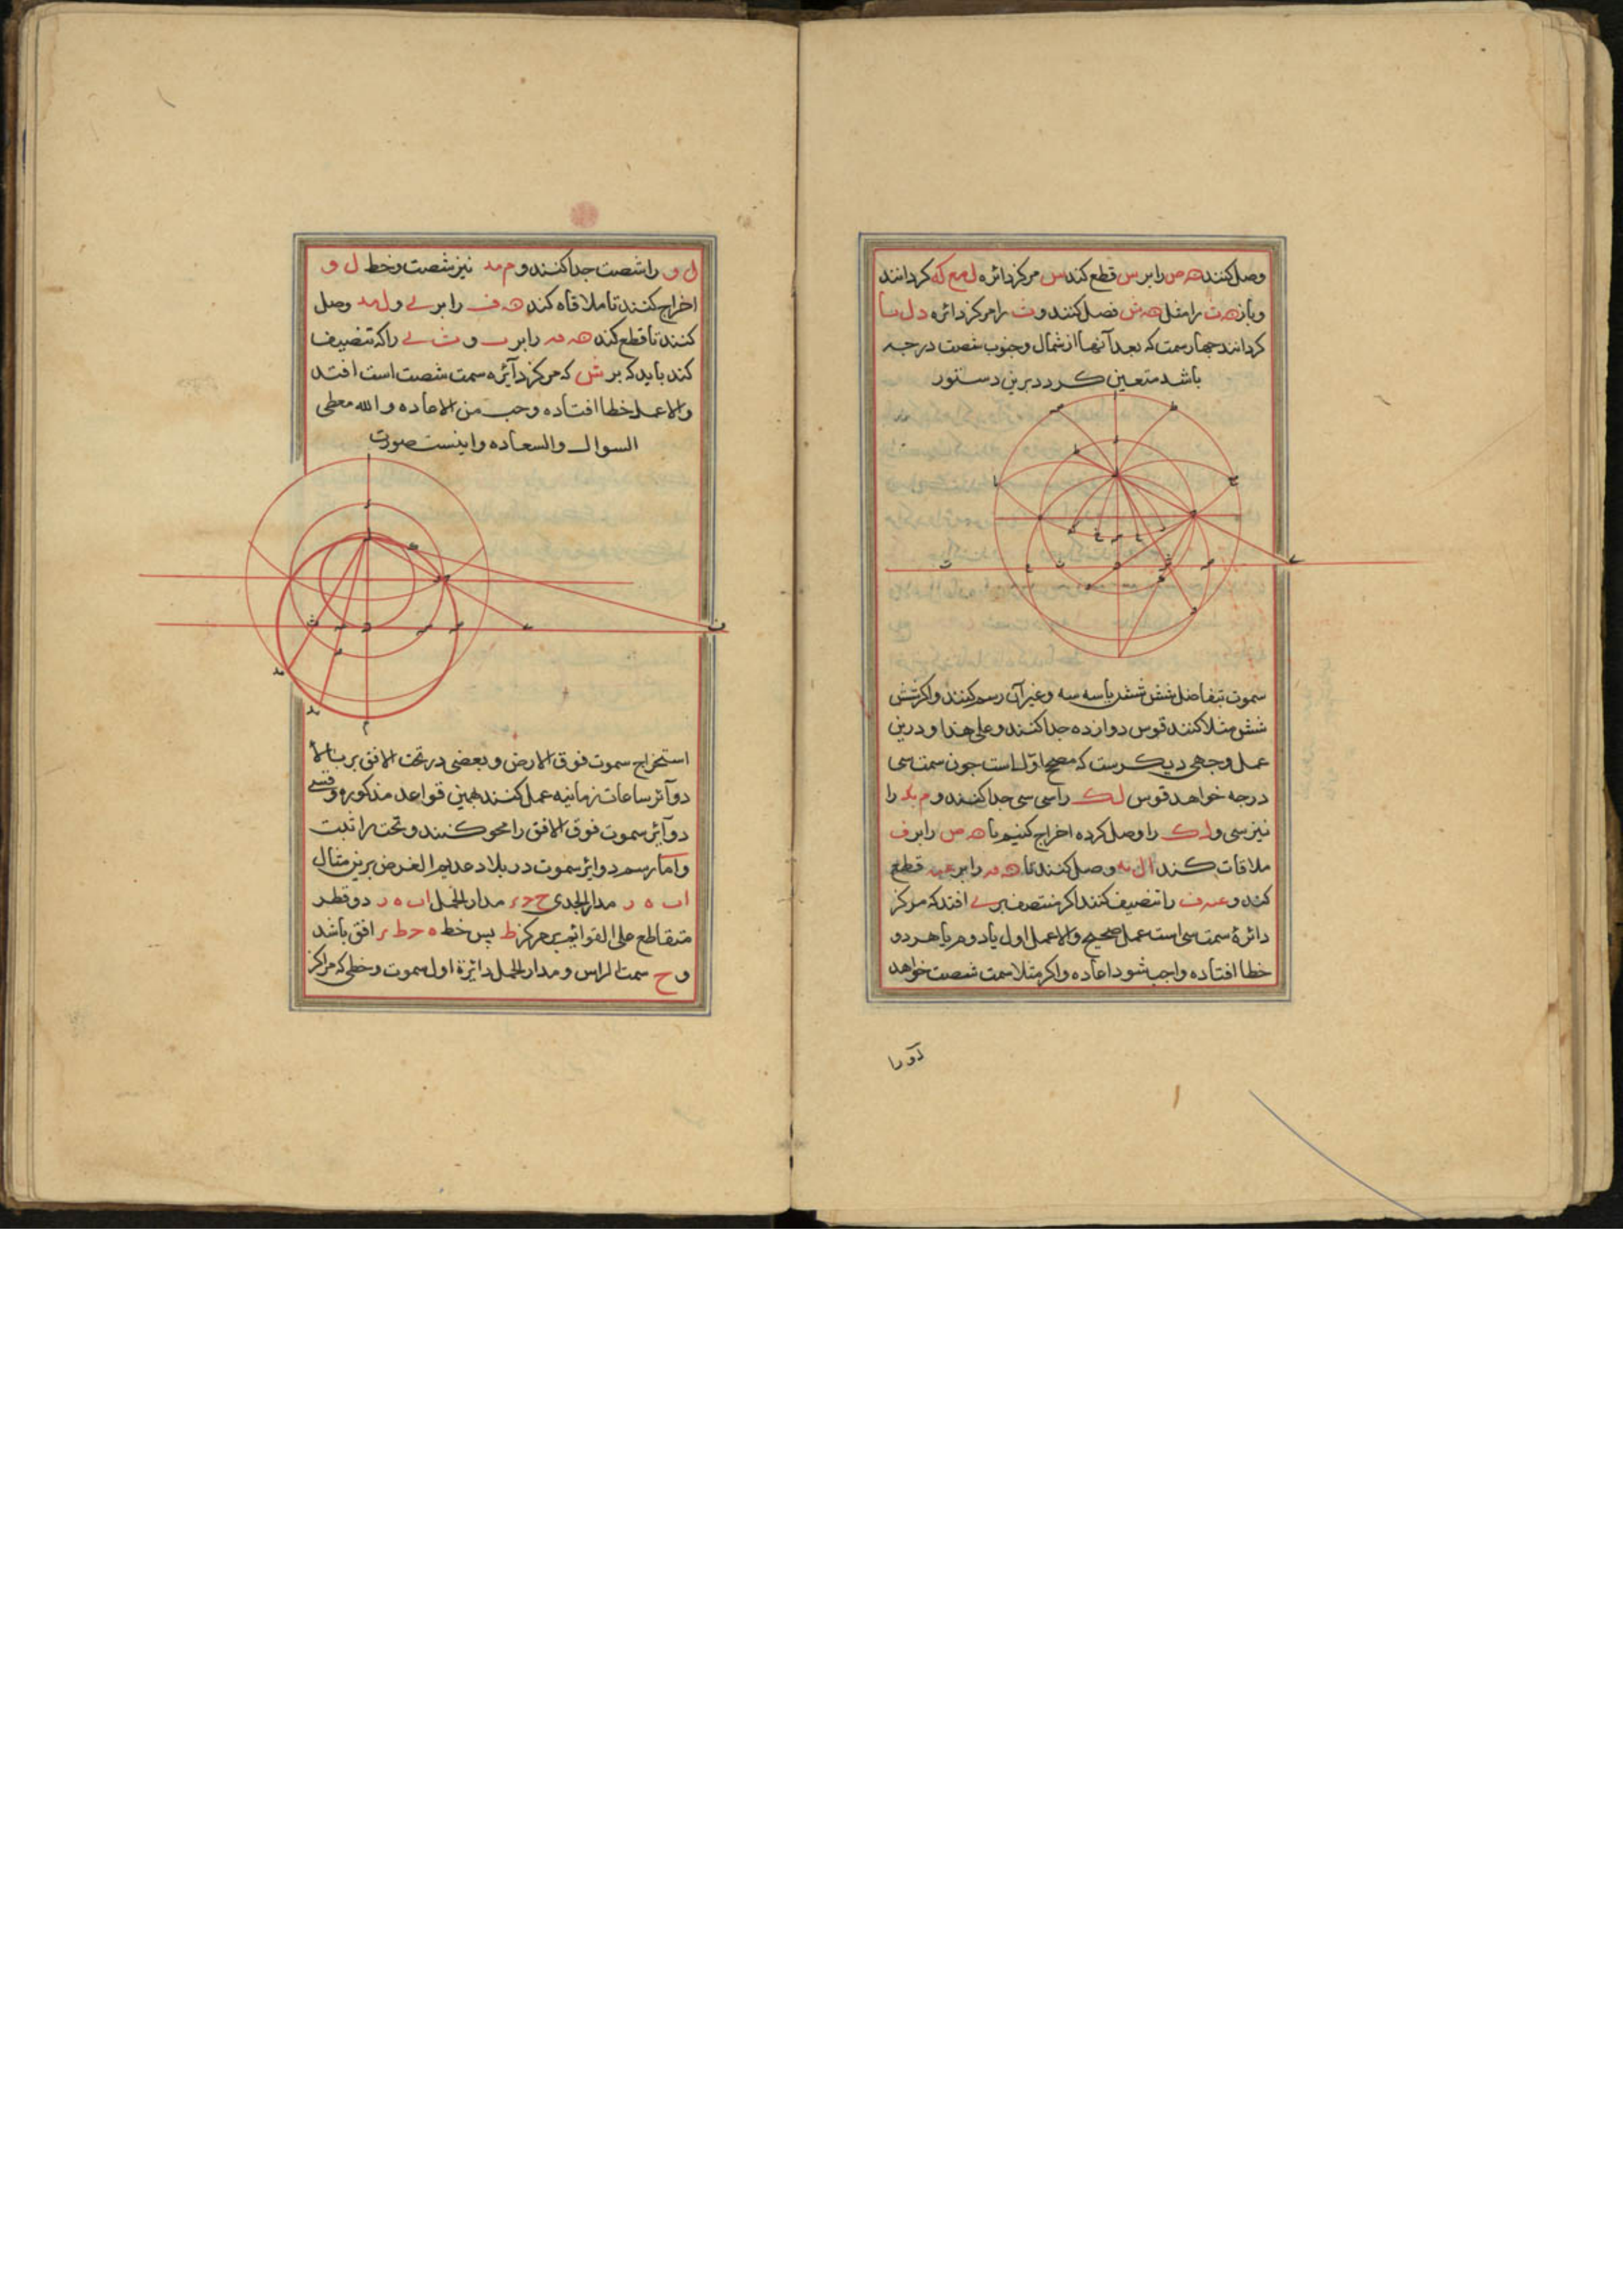 وصل کنند هـ ص را بر س قطع کند س مرکز دائره ل مع که کردانند
و باز هـ ت را مثل هـ ش فصل کنند و ت را مرکز دائره د ل سا
کردانند چهار سمت که بعد آنها از شمال و جنوب شصت درجه
باشد متعین کردد برین دستور
سموت بتفاضل شش شش یا سه سه و غیر آن رسم کنند و اکر شش
شش مثلا کنند قوس دوازده جدا کنند و علی هذا و درین
عمل وجهی دیکرست که مصحح اول است جون سمت سی
درجه خواهد قوس ل ک را سی سی جدا کنند و م بد را
نیز سی و ل ک را وصل کرده اخراج کنیم تا هـ ص را بر ف
ملاقات کند ال نه وصل کنند تا هـ مه را بر عه قطع
کند و عه ف را تنصیف کنند اکر منتصف بر ے افتد که مرکز
دائرهٔ سمت سی است عمل صحیح والا عمل اول یا دوم یا هر دو
خطا افتاده واجب شود اعاده و اکر مثلا سمت شصت خواهد
ل و را شصت جدا کنند و م مد نیز شصت و خط ل و
اخراج کنند تا ملاقاه کند هـ ف را بر ے و ل مد وصل
کنند تا قطع کند هـ مه را بر ب و ث ے را که تنصیف
کند باید که بر ش که مرکز دآئره سمت شصت است افتد
والا عمل خطا افتاده وجب من الاعاده و الله معطی
السوال والسعاده و اینست صورت
استخراج سموت فوق الارض و بعضی در تحت الافق بر بالا
دوآئر ساعات زمانیه عمل کنند بهمین قواعد مذکوره و قسی
دوآئر سموت فوق الافق را محو کنند و تحت را ثبت
و اما رسم دوایر سموت در بلاد عدیم العرض برین مثال
اب ه ر مدار الجدی ح د ء مدار الحمل اب ه ر دو قطر
متقاطع علی القوائم بر مرکز ط پس خط ه ح ط ر افق باشد
و ح سمت الراس و مدار الحمل دائرة اول سموت و خطی که مراکز